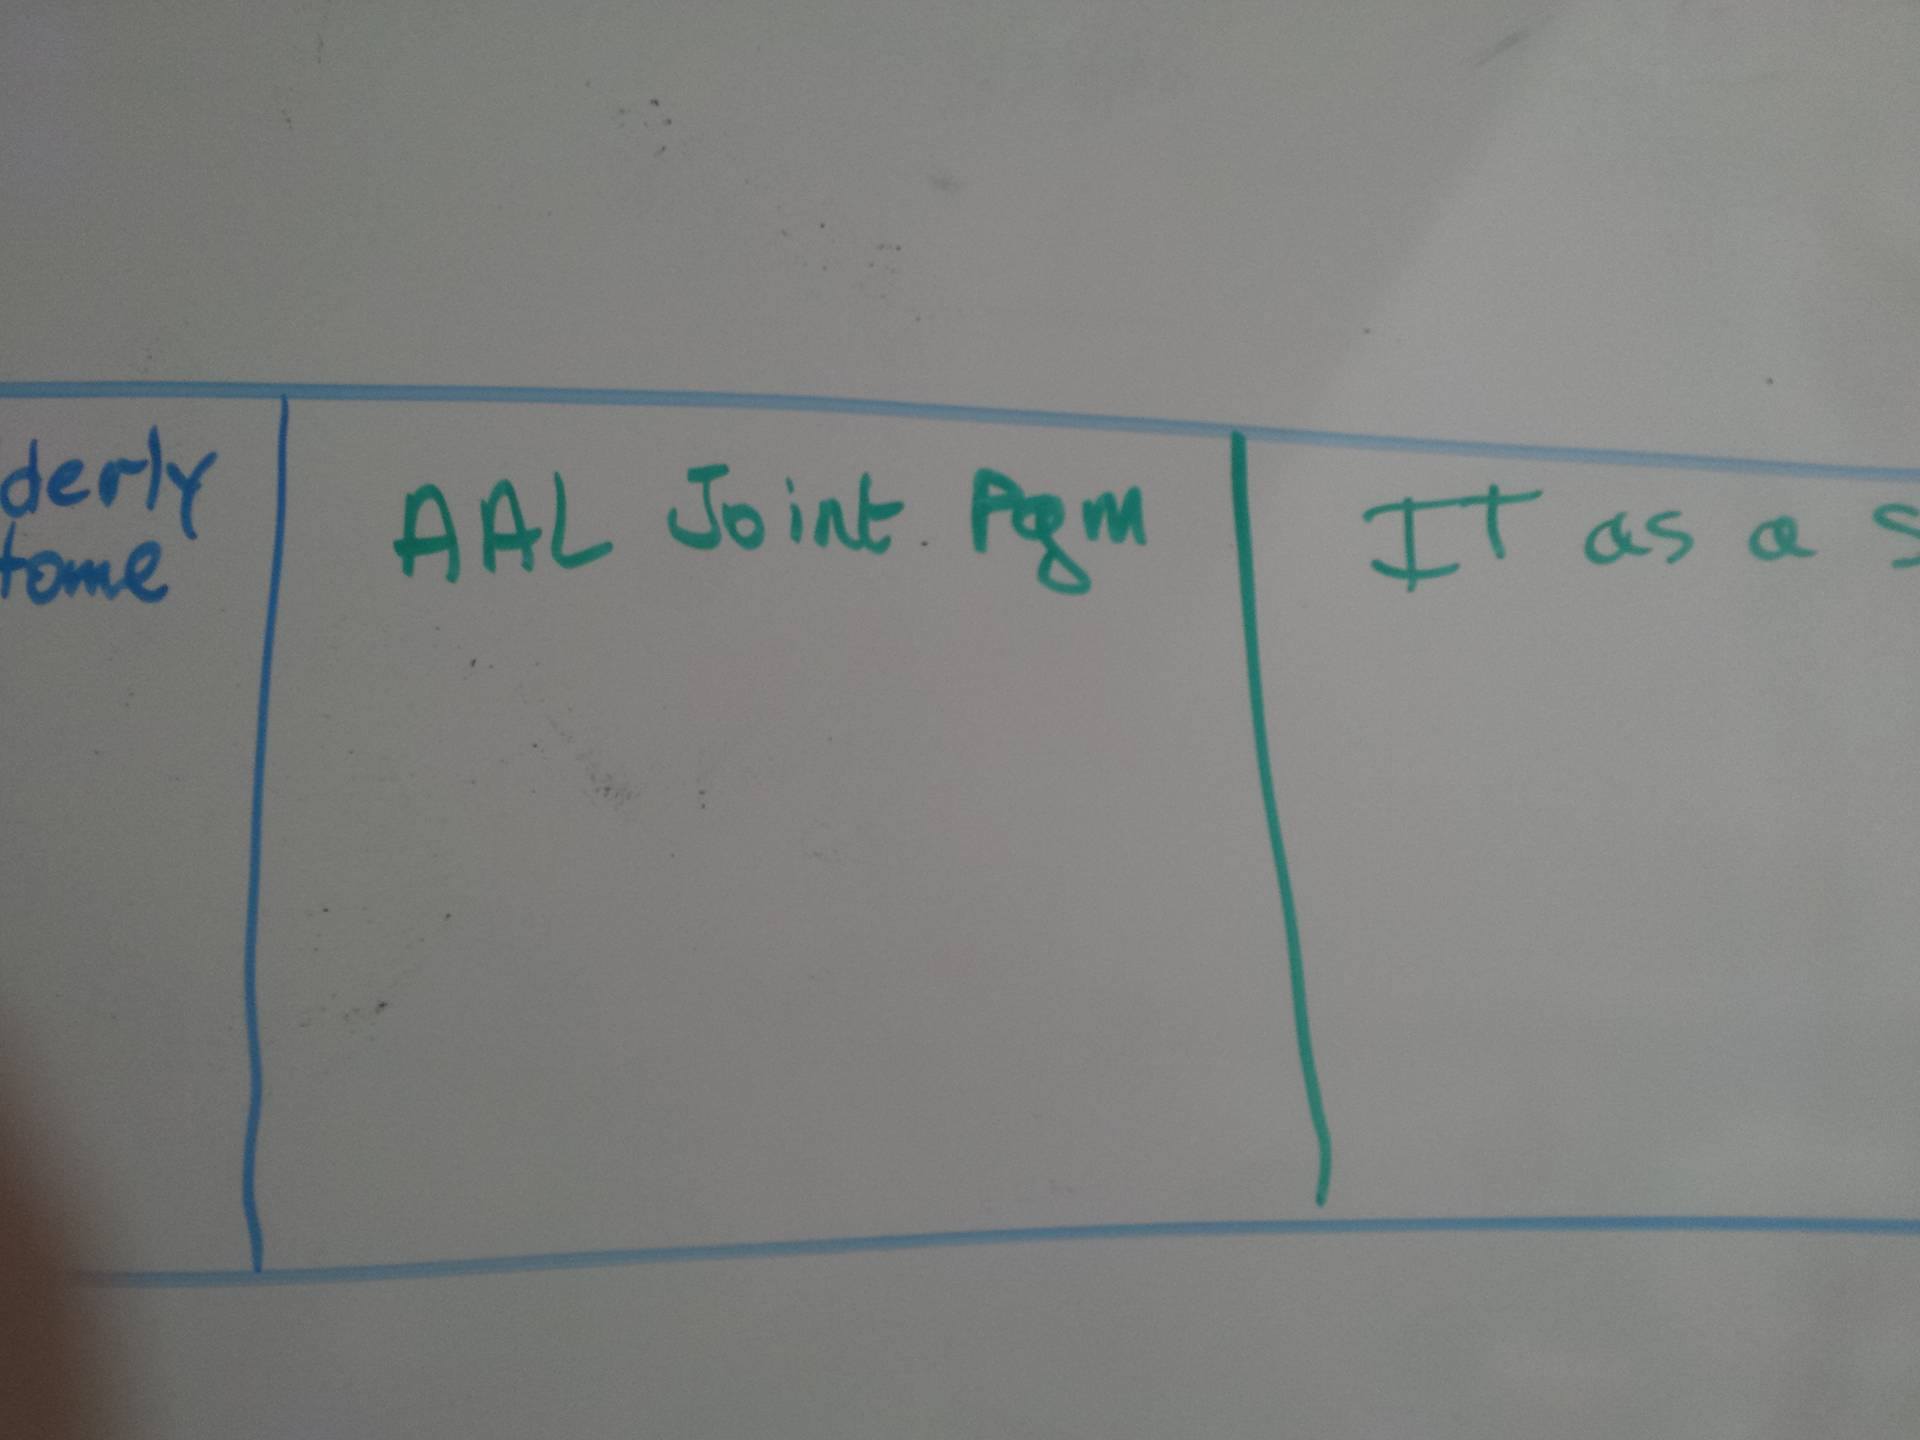 derly
tome
AAL Joint Pgm
IT as a S